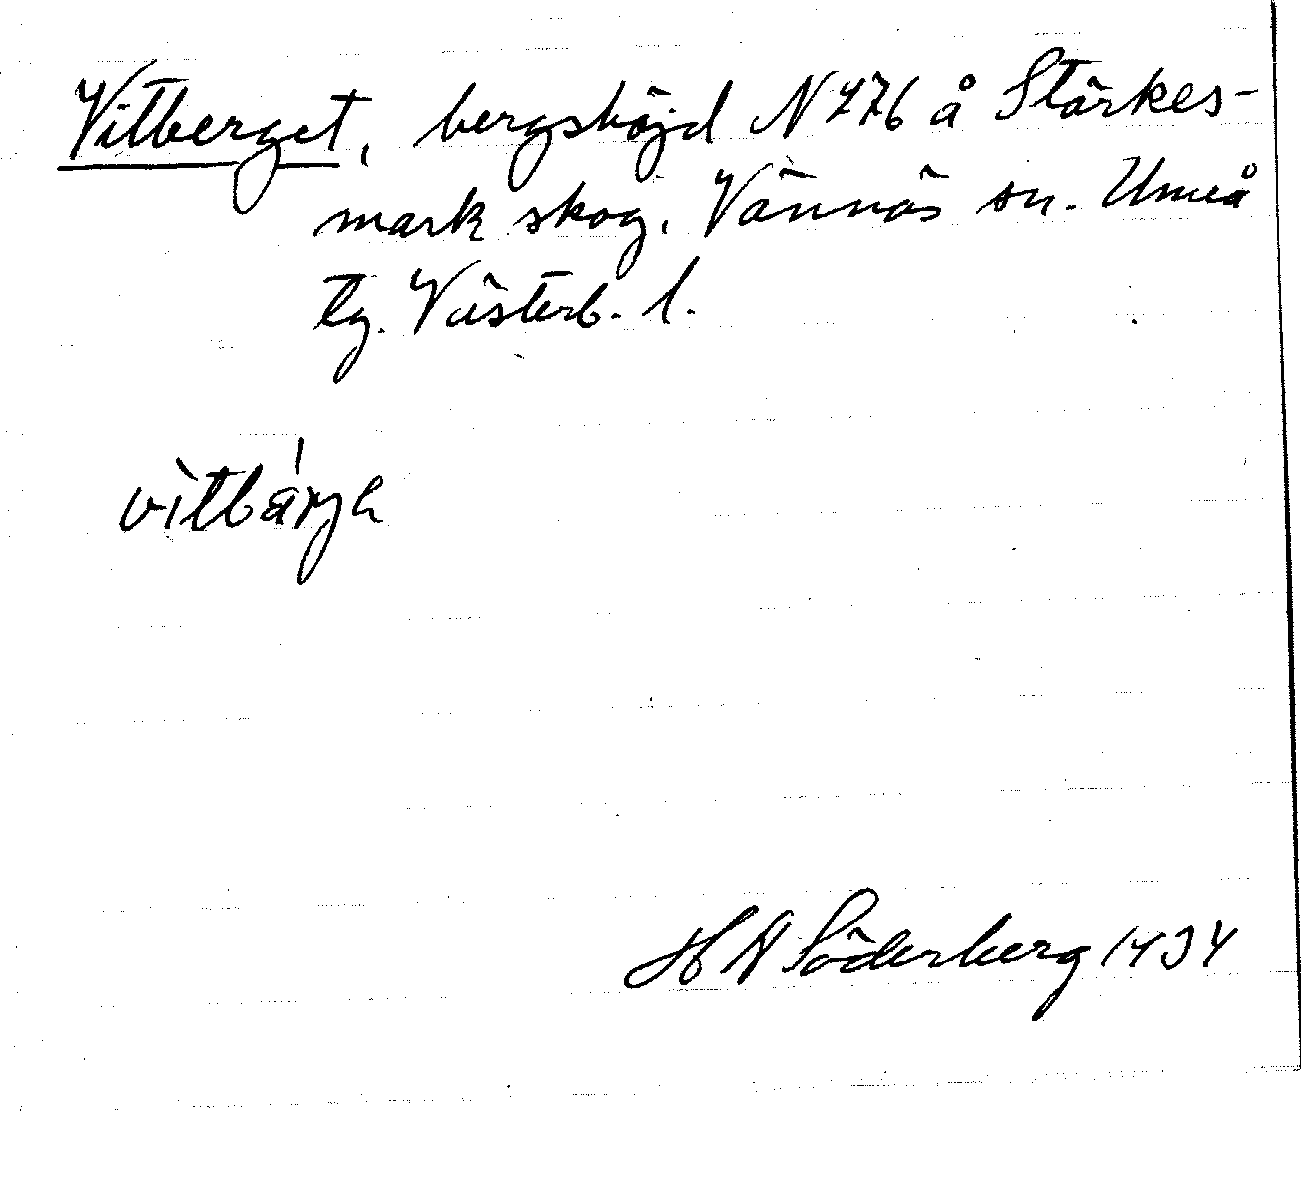 Vitberget, bergshöjd N 776 å Stärkes-
mark skog. Vännäs sn. Umeå
tg. Västerb. l.
vìtbä́rjɂ
H A Söderberg 1934